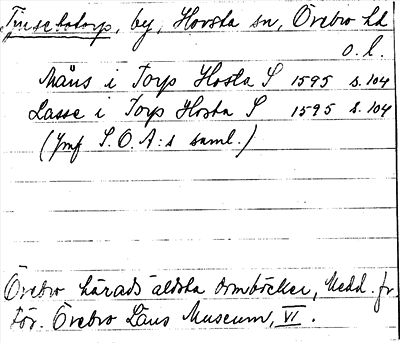 Tyusetatorp, by, Hovsta sn, Örebro hd
o. l.
Måns i Torp Hosta S 1595 s. 104
Lasse i Torp Hosta S 1595 s. 104
(Jmf S.O.A:s saml.)
Örebro härads äldsta dombÖcker, Medd. fr.
För. Örebro Läns Museum, VI.